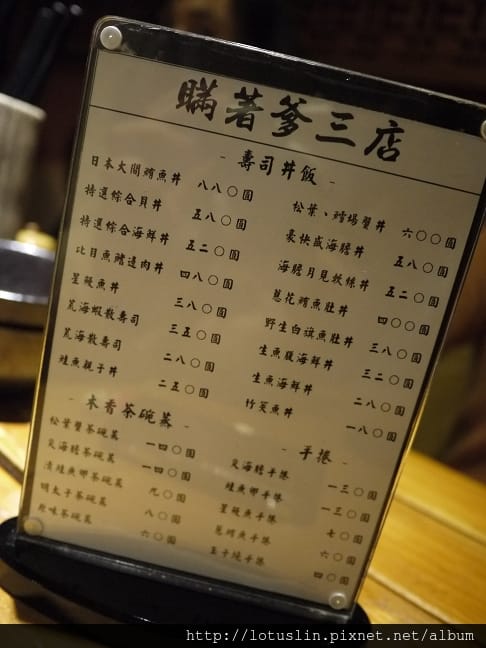 瞞著爹三店
- 壽司丼飯 -
日本大間鮪魚丼 八八〇圓
特選綜合貝丼 五八〇圓
特選綜合海鮮丼 五二〇圓
比目魚鰭邊肉丼 四八〇圓
星鰻魚丼 三八〇圓
炙海蝦散壽司 三五〇圓
炙海散壽司 二八〇圓
鮭魚親子丼 二五〇圓
松葉、鱈場蟹丼 六〇〇圓
豪快盛海膽丼 五八〇圓
海膽月見軟絲丼 五二〇圓
蔥花鮪魚肚丼 四〇〇圓
野生白旗魚肚丼 三八〇圓
生魚腹海鮮丼 三二〇圓
生魚海鮮丼 二八〇圓
竹筴魚丼 一八〇圓
- 木香茶碗蒸 -
松葉蟹茶碗蒸 一四〇圓
炙海膽茶碗蒸 一四〇圓
漬鮭魚卵茶碗蒸 九〇圓
明太子茶碗蒸 八〇圓
原味茶碗蒸 六〇圓
- 手捲 -
炙海膽手捲 一三〇圓
鮭魚卵手捲 一三〇圓
星鰻魚手捲 七〇圓
蔥鮪魚手捲 六〇圓
玉子燒手捲 四〇圓
http://lotuslin.pixnet.net/album